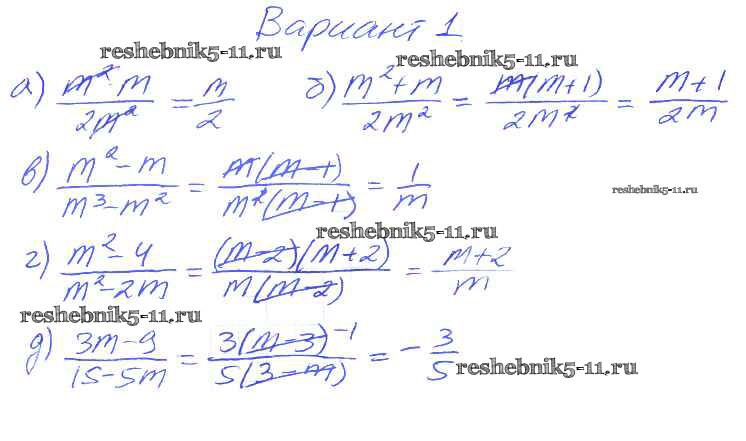 Вариант 1
reshebnik5-11.ru
reshebnik5-11.ru
а) m²·m/2m² = m/2 б) m²+m/2m² = m(m+1)/2m² = m+1/2m
в) m²-m/m³-m² = m(m-1)/m²(m-1) = 1/m
reshebnik5-11.ru
reshebnik5-11.ru
г) m²-4/m²-2m = (m-2)(m+2)/m(m-2) = m+2/m
reshebnik5-11.ru
д) 3m-9/15-5m = 3(m-3)⁻¹/5(3-m) = -3/5
reshebnik5-11.ru